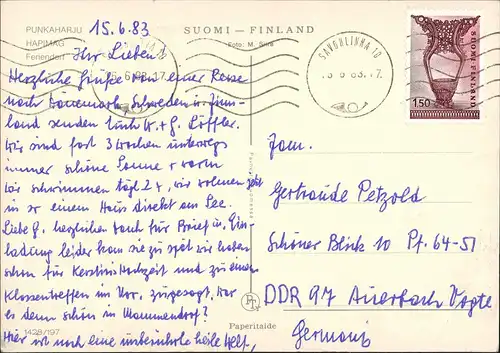 PUNKAHARJU
HAPIMAG
Feriendorf
SUOMI - FINLAND
Foto: M. Sirs
15.6.83
Ihr Lieben!
Herzliche Grüße von einer Reise
nach Dänemark, Schweden u. Finn-
land senden Euch W. + G. Löffler.
Wir sind fast 3 Wochen unterwegs
immer schöne Sonne + warm
wir schwimmen tägl 2 x, wir wohnen jetzt
in so einem Haus direkt am See.
Liebe G. herzlichen Dank für Brief u. Ein-
ladung leider kam sie zu spät wir haben
schon für Kerstin Hochzeit und zu einem
Klassentreffen im Vor. zugesagt, war
es denn schön in Mammendorf?
Hier ist noch eine unberührte heile Welt,
1428/197
SAVONLINNA 10
15 6 83.17
SUOMI FINLAND
1,50
Fam.
Gertraude Petzold
Schöner Blick 10 Pf. 64-51
DDR 97 Auerbach Vogtl
Germany
Paperitaide